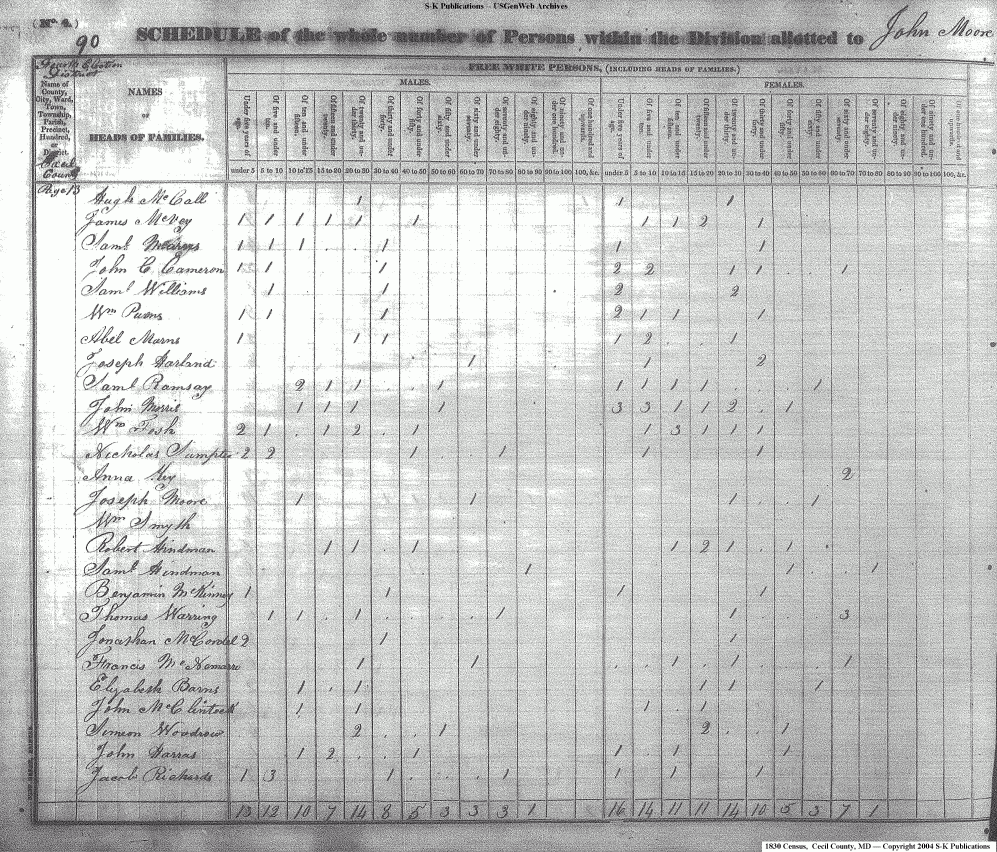 S-K Publications – USGenWeb Archives
(No 4.)
90
SCHEDULE of the whole number of Persons within the Division allotted to John Moore
Fourth Election
District
Name of County, City, Ward, Town, Township, Parish, Precinct, Hundred, or District.
Cecil
County
NAMES
OF
HEADS OF FAMILIES.
FREE WHITE PERSONS, (INCLUDING HEADS OF FAMILIES.)
MALES. FEMALES.
Under five years of age. Of five and under ten. Of ten and under fifteen. Of fifteen and under twenty. Of twenty and under thirty. Of thirty and under forty. Of forty and under fifty. Of fifty and under sixty. Of sixty and under seventy. Of seventy and under eighty. Of eighty and under ninety. Of ninety and under one hundred. Of one hundred and upwards. Under five years of age. Of five and under ten. Of ten and under fifteen. Of fifteen and under twenty. Of twenty and under thirty. Of thirty and under forty. Of forty and under fifty. Of fifty and under sixty. Of sixty and under seventy. Of seventy and under eighty. Of eighty and under ninety. Of ninety and under one hundred. Of one hundred and upwards.
under 5 5 to 10 10 to 15 15 to 20 20 to 30 30 to 40 40 to 50 50 to 60 60 to 70 70 to 80 80 to 90 90 to 100 100, &c. under 5 5 to 10 10 to 15 15 to 20 20 to 30 30 to 40 40 to 50 50 to 60 60 to 70 70 to 80 80 to 90 90 to 100 100, &c.
Page 13
Hugh McCall 1 1 1
James McVey 1 1 1 1 1 1 1 1 2 1
Saml Mearns 1 1 1 1 1 1
John C. Cameron 1 1 1 2 2 1 1 1
Saml Williams 1 1 2 2
Wm Pearns 1 1 1 2 1 1 1
Abel Marns 1 1 1 1 2 1
Joseph Harland 1 1 2
Saml Ramsay 2 1 1 1 1 1 1 1 1
John Morris 1 1 1 1 3 3 1 1 2 1
Wm Tosh 2 1 1 2 1 1 3 1 1 1
Nicholas 2 2 1 1 1 1
Anna 2
Joseph Moore 1 1 1 1
Wm Smyth
Robert Hindman 1 1 1 1 2 1 1
Saml Hindman 1 1 1
Benjamin McKinney 1 1 1 1
Thomas Warring 1 1 1 1 1 3
Jonathan McCordel 2 1 1
Francis McNamarre 1 1 1 1 1
Elizabeth Barns 1 1 1 1 1
John McClintock 1 1 1 1
Simeon Woodrow 2 1 2 1
John Harras 1 2 1 1 1 1
Jacob Richards 1 3 1 1 1 1 1
13 12 10 7 14 8 5 3 3 3 1 16 14 11 11 14 10 5 3 7 1
1830 Census, Cecil County, MD — Copyright 2004 S-K Publications